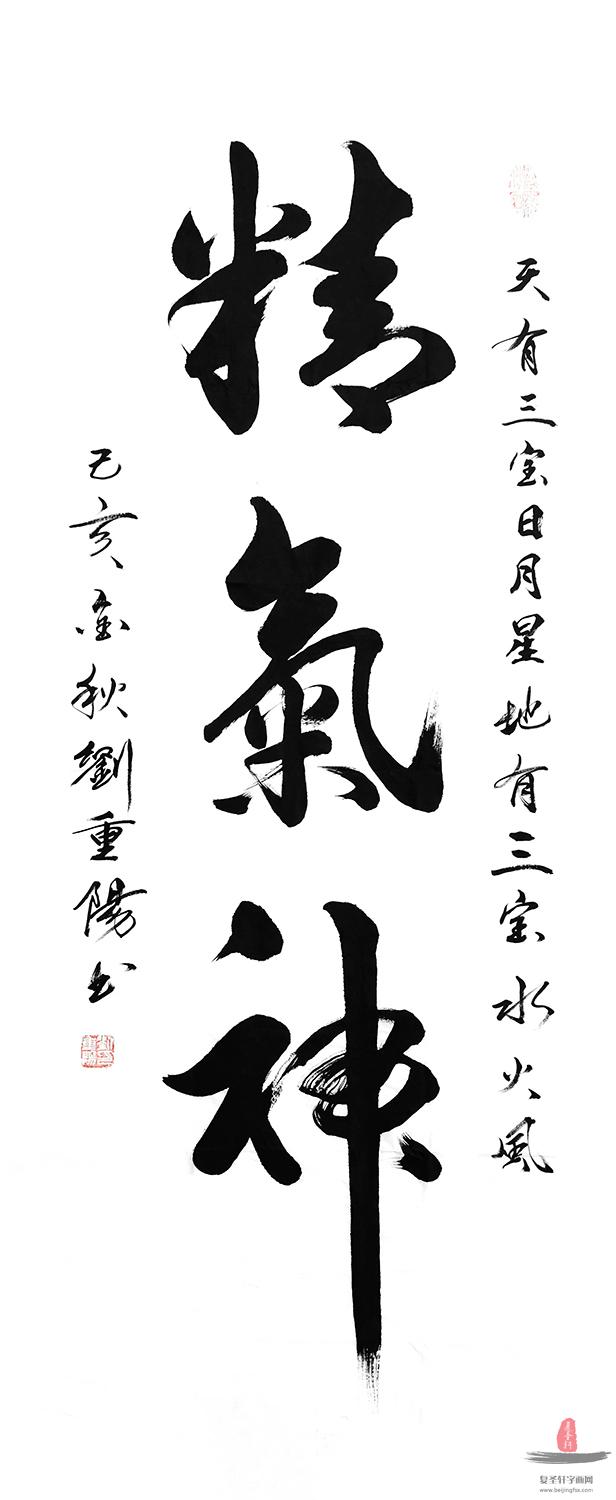 天有三宝日月星地有三宝水火風
精氣神
己亥金秋劉重陽书
复圣轩字画网
www.beijingfsx.com